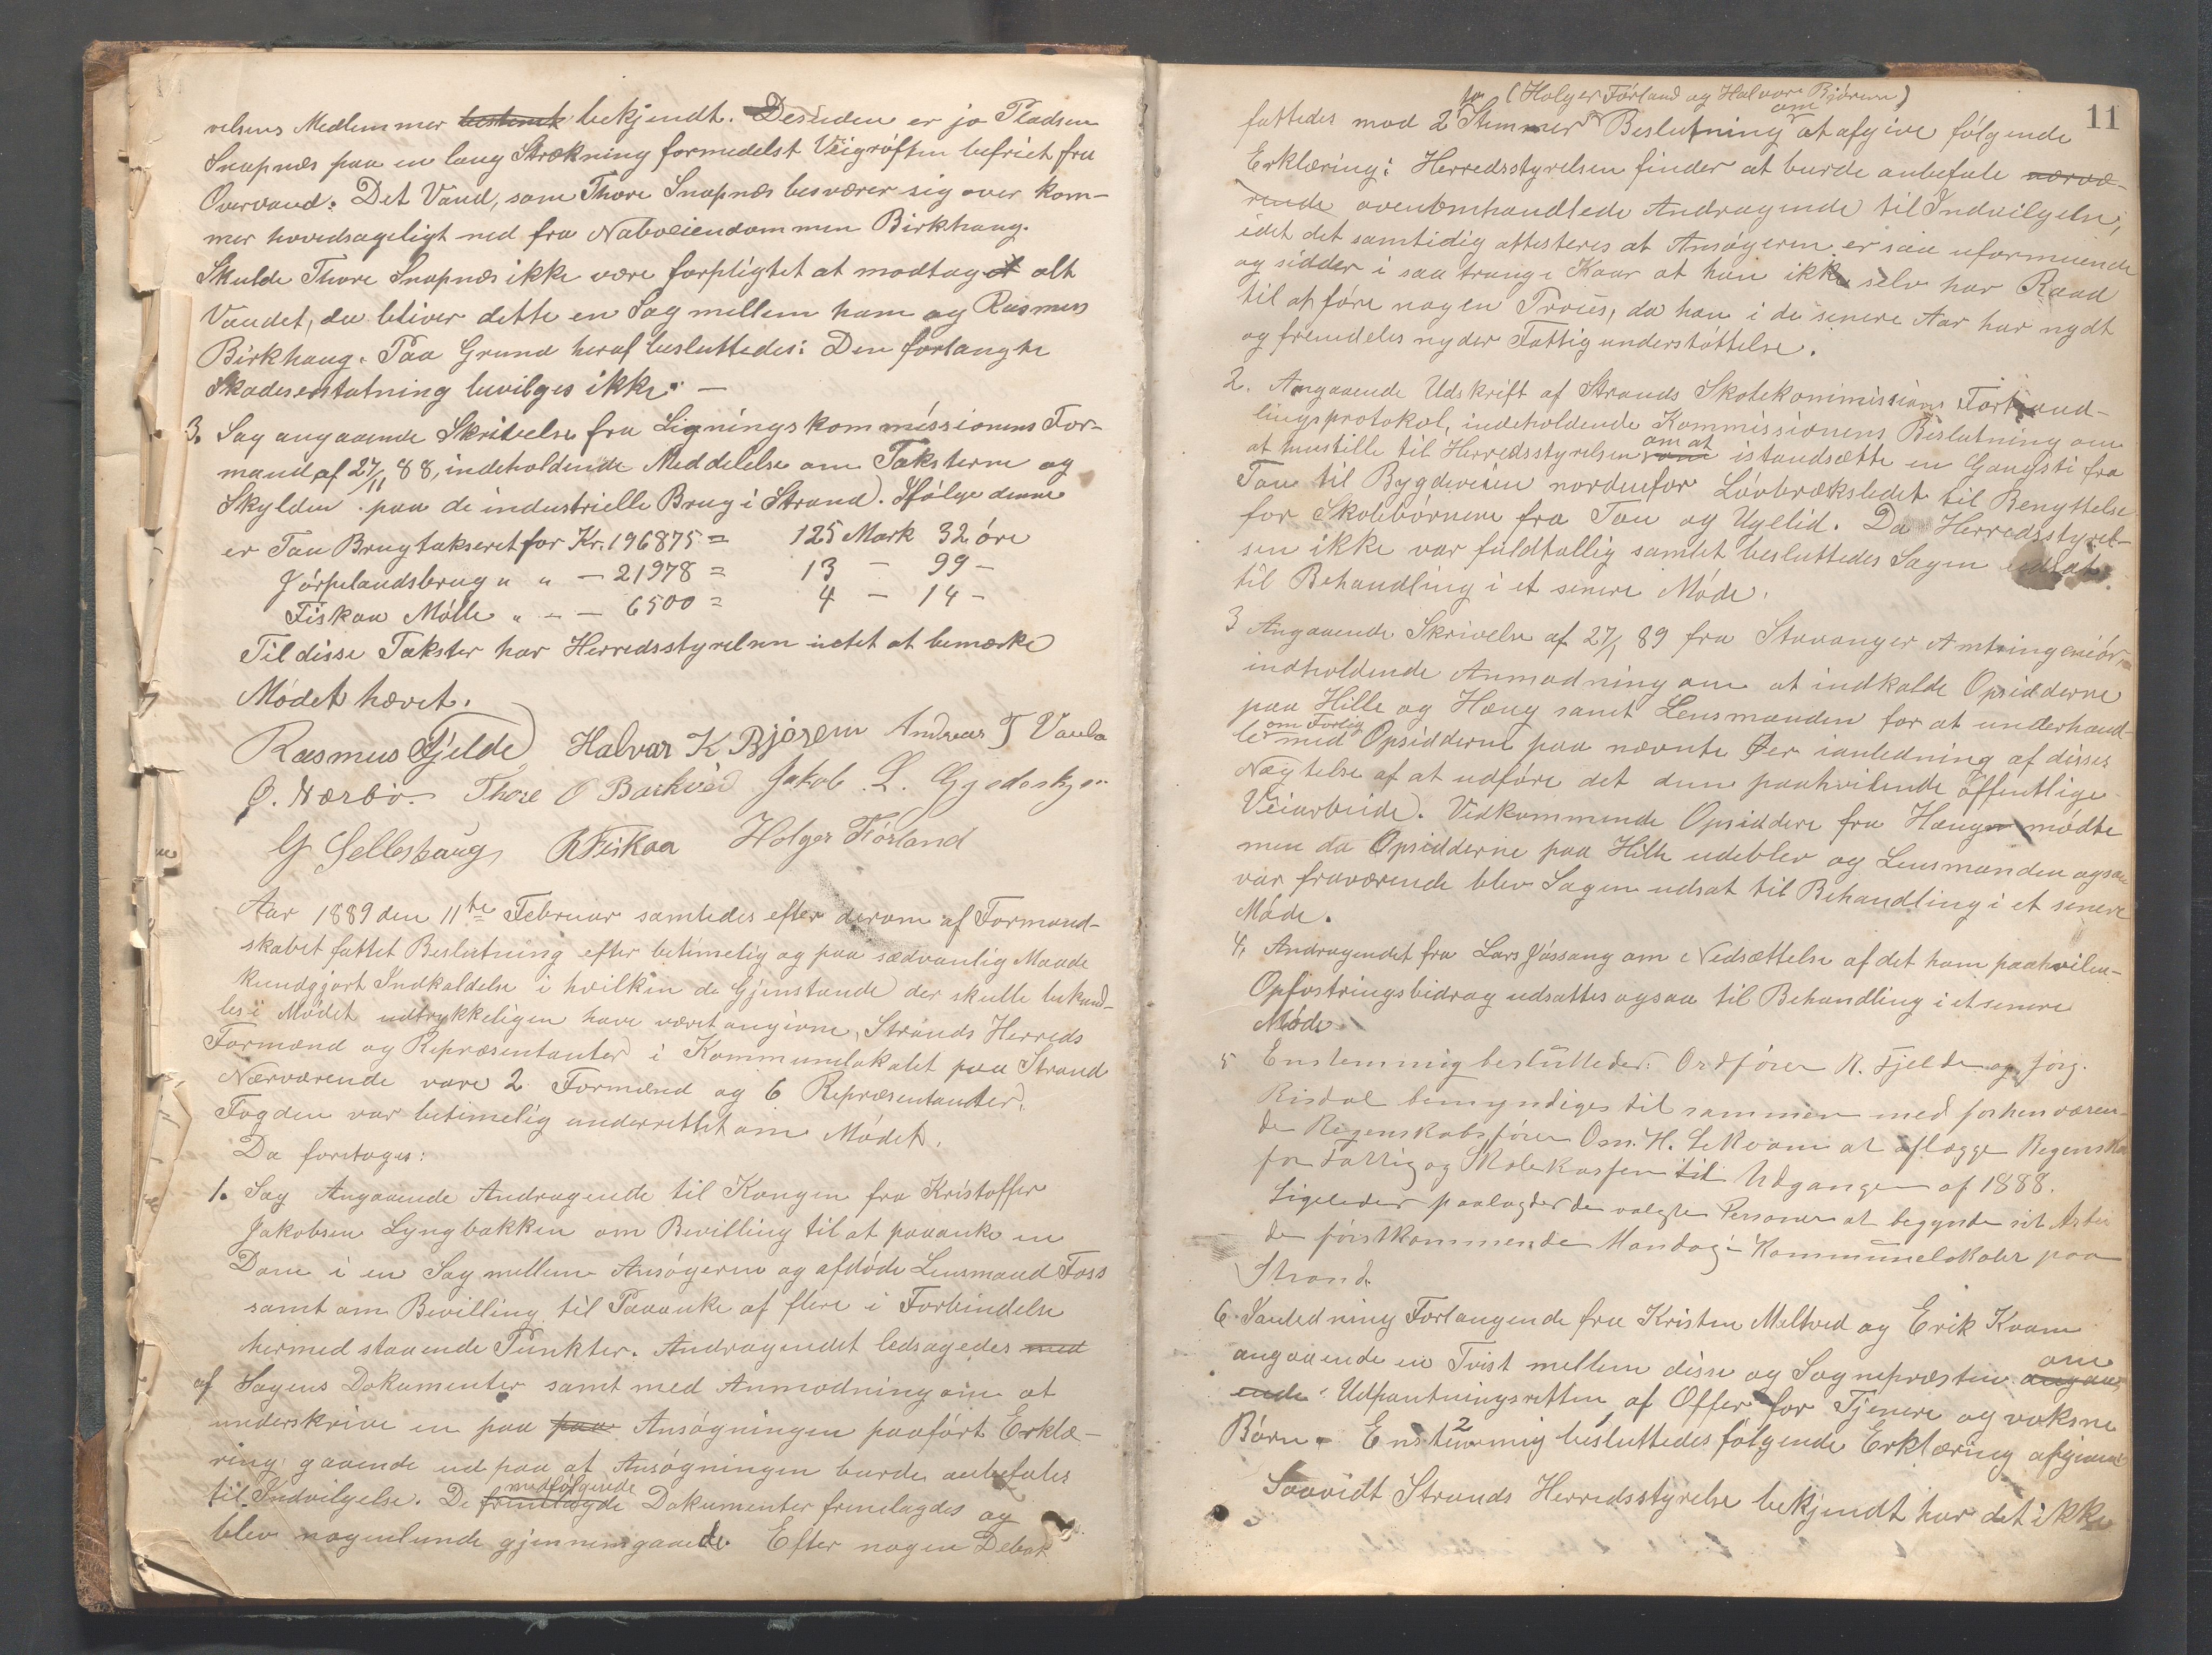 velsens Medlemmer bestemt bekjendt. Desuden er jo Pladsen
Snapnæs paa en lang Strækning formedelst Veigrøften befriet fra
Overvand. Det Vand, som Thore Snapnæs besværer sig over kom-
mer hovedsageligt ned fra Naboeiendommen Birkhaug.
Skulde Thore Snapnæs ikke være forpligtet at modtaget alt
Vandet, da bliver dette en Sag mellem ham og Rasmus
Birkhaug. Paa Grund heraf besluttedes: Den forlangte
Skadeserstatning bevilges ikke. —
3. Sag angaaende Skrivelse fra Ligningskommissionens For-
mand af 27/11 88, indeholdende Meddelelse om Taksterne og
Skylden paa de industrielle Brug i Strand. Ifølge denne
er Tau Brug takseret for Kr. 196875 = 125 Mark 32 øre
Jørpelandsbrug " " — 21978 = 13 — 99 —
Fiskaa Mølle " — — 6500 = 4 — 14 —
Til disse Takster har Herredsstyrelsen intet at bemærke
Mødet hævet.
Rasmus Fjelde Halvar K Bjørem Andreas T Vaula
O. Nærbø. Thore O Barkved Jakob L.
G R Fiskaa Holger Førland
Aar 1889 den 11te Februar samledes efter derom af Formand-
skabet fattet Beslutning efter betimelig og paa sædvanlig Maade
kundgjort Indkaldelse i hvilken de Gjenstande der skulle behand-
les i Mødet udtrykkeligen have været angivne, Strands Herreds
Formænd og Repræsentanter i Kommunelokalet paa Strand
Nærværende vare 2 Formænd og 6 Repræsentanter.
Fogden var betimelig underrettet om Mødet.
Da foretoges:
1. Sag Angaaende Andragende til Kongen fra Kristoffer
Jakobsen Lyngbakken om Bevilling til at paaanke en
Dom i en Sag mellem Ansøgeren og afdøde Lensmand Foss
samt om Bevilling til Paaanke af flere i Forbindelse
hermed staaende Punkter. Andragendet ledsagedes med
af Sagens Dokumenter samt med Anmodning om at
underskrive en paa paa Ansøgningen paaført Erklæ-
ring gaaende ud paa at Ansøgningen burde anbefales
medfølgende
til Indvilgelse. De fremlagde Dokumenter fremlagdes og
blev nogenlunde gjennemgaaede Efter nogen Debat
11
(Holger Førland og Halvar Bjørem)
fattedes mod 2 Stemmer Beslutning om at afgive følgende
Erklæring: Herredsstyrelsen finder at burde anbefale nærvæ-
rende ovenomhandlede Andragende til Indvilgelse,
idet det samtidig attesteres at Ansøgeren er saa uformuende
og sidder i saa trange Kaar at han ikke selv har Raad
til at føre nogen Proces, da han i de senere Aar har nydt
og fremdeles nyder Fattigunderstøttelse.
2. Angaaende Udskrift af Strands Skolekommissions Forhand-
lingsprotokol, indeholdende Kommissionens Beslutning om
at henstille til Herredsstyrelsen om at istandsætte en Gangsti fra
Tau til Bygdeveien nordenfor Løvbræksledet til Benyttelse
for Skolebørnene fra Tau og Ugelid. Da Herredsstyrel-
sen ikke var fuldtallig samlet besluttedes Sagen udsat
til Behandling i et senere Møde.
3 Angaaende Skrivelse af 27/1 89 fra Stavanger Amtsingeniør
indholdende Anmodning om at indkalde Opsidderne
paa Hille og Heng samt Lensmanden for at underhand-
om Forlig
le med Opsidderne paa nævnte Øer ianledning af disses
Nægtelse af at udføre det dem paahvilende offentlige
Veiarbeide. Vedkommende Opsiddere fra Heng mødte
men da Opsidderne paa Hille udeblev og Lensmanden ogsaa
var fraværende blev Sagen udsat til Behandling i et senere
Møde.
4. Andragendet fra Lars Jøssang om Nedsættelse af det ham paahvilen-
Opfostringsbidrag udsattes ogsaa til Behandling i et senere
Møde
5 Enstemmig besluttedes: Ordfører R. Fjelde og Jørg.
Risdal bemyndiges til sammen med forhenværen-
de Regenskabsfører Om. H. Lekvam at aflægge Regenskab
for Fattig og Skolekassen til Udgangen af 1888.
Ligeledes paalagdes de valgte Personer at begynde sit Arbei
de førstkommende Mandag i Kommunelokalet paa
Strand.
6. Ianledning Forlangende fra Kristen Meltved og Erik Kvam
angaaende en Tvist mellem disse og Sognepræsten om angaa
ende Udpantningsretten af Offer for Tjenere og voksne
Børn. Enstemmig besluttedes følgende Erklæring afgiven:
Saavidt Strands Herredsstyrelse bekjendt har det ikke